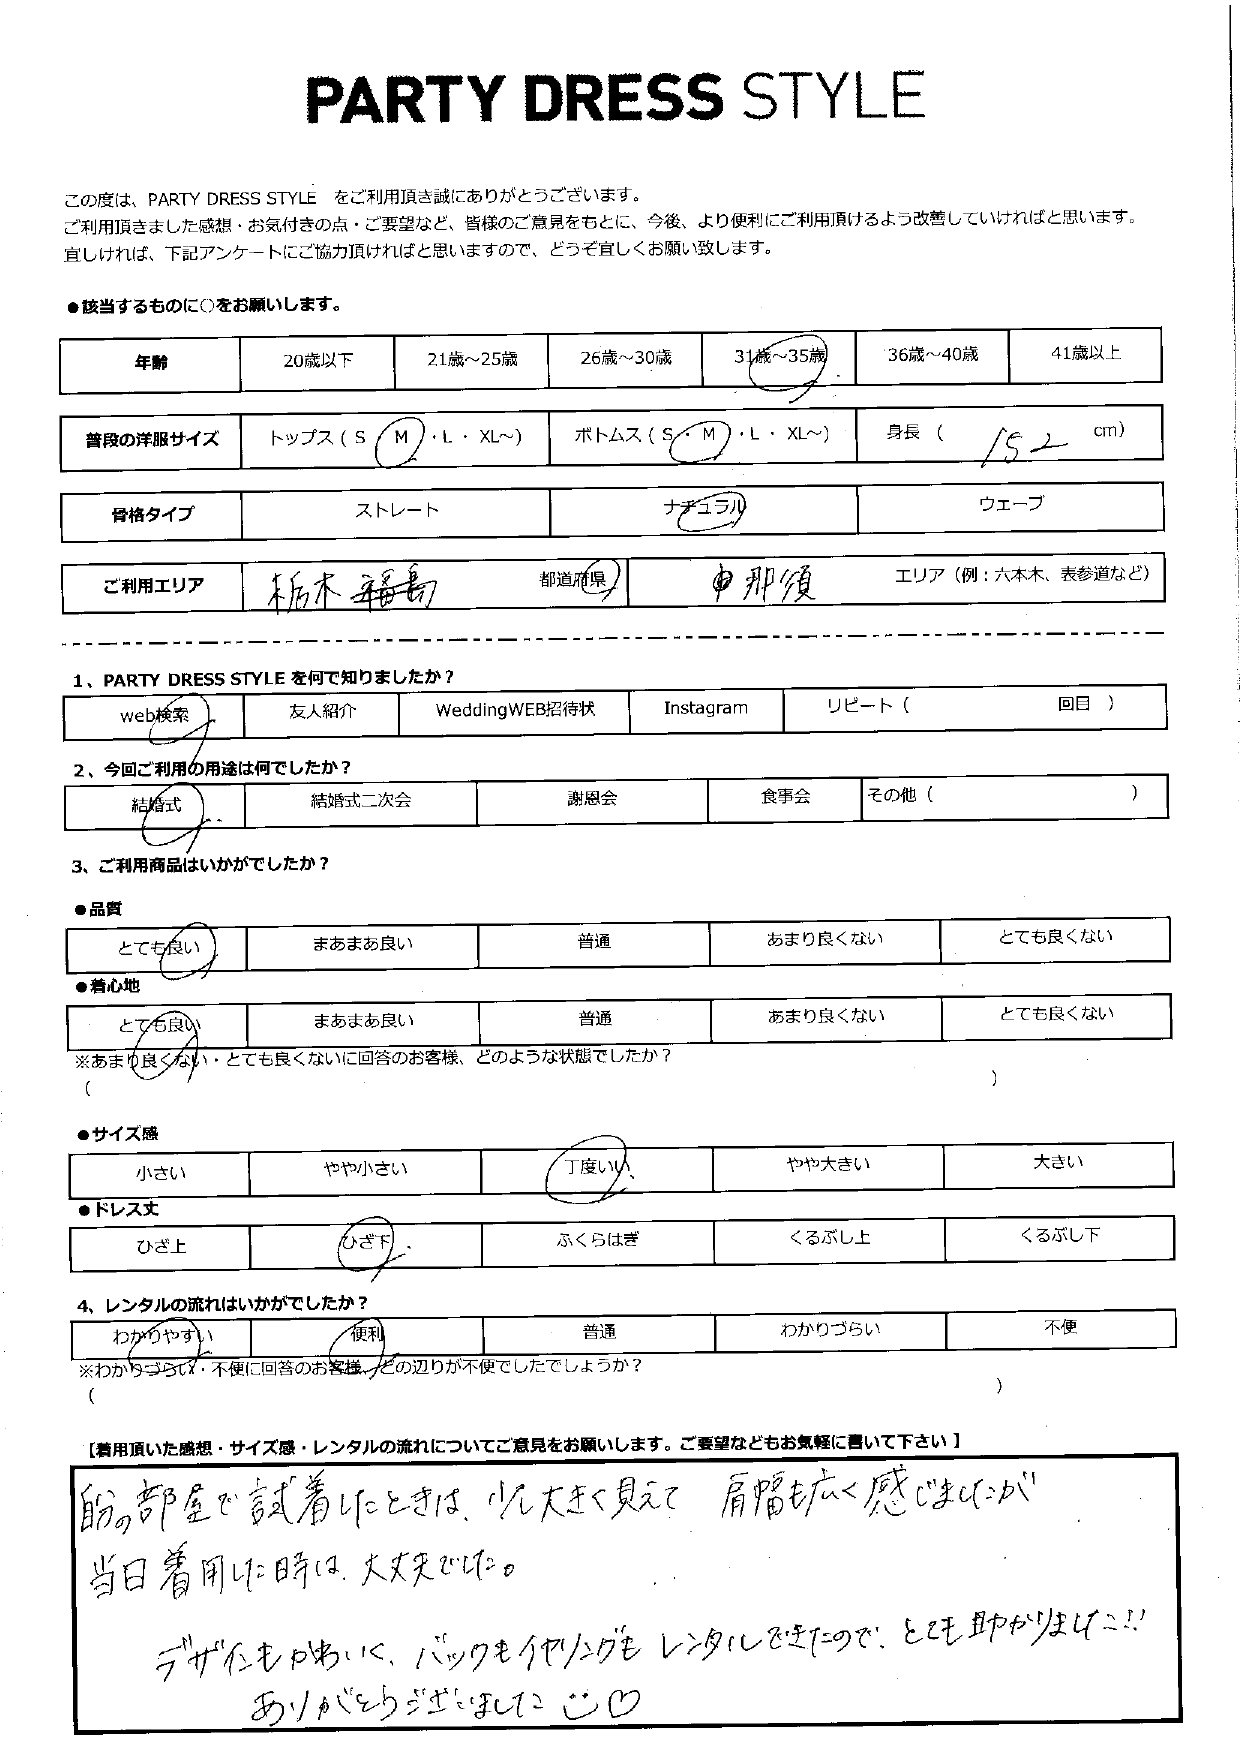 PARTY DRESS STYLE
この度は、PARTY DRESS STYLE をご利用頂き誠にありがとうございます。
ご利用頂きました感想・お気付きの点・ご要望など、皆様のご意見をもとに、今後、より便利にご利用頂けるよう改善していければと思います。
宜しければ、下記アンケートにご協力頂ければと思いますので、どうぞ宜しくお願い致します。
●該当するものに○をお願いします。
年齢 20歳以下 21歳～25歳 26歳～30歳 31歳～35歳 36歳～40歳 41歳以上
普段の洋服サイズ トップス ( S ・ M ・ L ・ XL～) ボトムス ( S ・ M ・ L ・ XL～) 身長 ( 152 cm)
骨格タイプ ストレート ナチュラル ウェーブ
ご利用エリア 栃木 福島 都道府県 那須 エリア（例：六本木、表参道など）
1、PARTY DRESS STYLE を何で知りましたか？
web検索 友人紹介 WeddingWEB招待状 Instagram リピート ( 回目 )
2、今回ご利用の用途は何でしたか？
結婚式 結婚式二次会 謝恩会 食事会 その他 ( )
3、ご利用商品はいかがでしたか？
●品質
とても良い まあまあ良い 普通 あまり良くない とても良くない
●着心地
とても良い まあまあ良い 普通 あまり良くない とても良くない
※あまり良くない・とても良くないに回答のお客様、どのような状態でしたか？
( )
●サイズ感
小さい やや小さい 丁度いい やや大きい 大きい
●ドレス丈
ひざ上 ひざ下 ふくらはぎ くるぶし上 くるぶし下
4、レンタルの流れはいかがでしたか？
わかりやすい 便利 普通 わかりづらい 不便
※わかりづらい・不便に回答のお客様、どの辺りが不便でしたでしょうか？
( )
【着用頂いた感想・サイズ感・レンタルの流れについてご意見をお願いします。ご要望などもお気軽に書いて下さい】
自分の部屋で試着したときは、少し大きく見えて 肩幅も広く感じましたが
当日着用した時は、大丈夫でした。
デザインもかわいく、バックもイヤリングも レンタルできたので、とても助かりました!!
ありがとうございました ♡